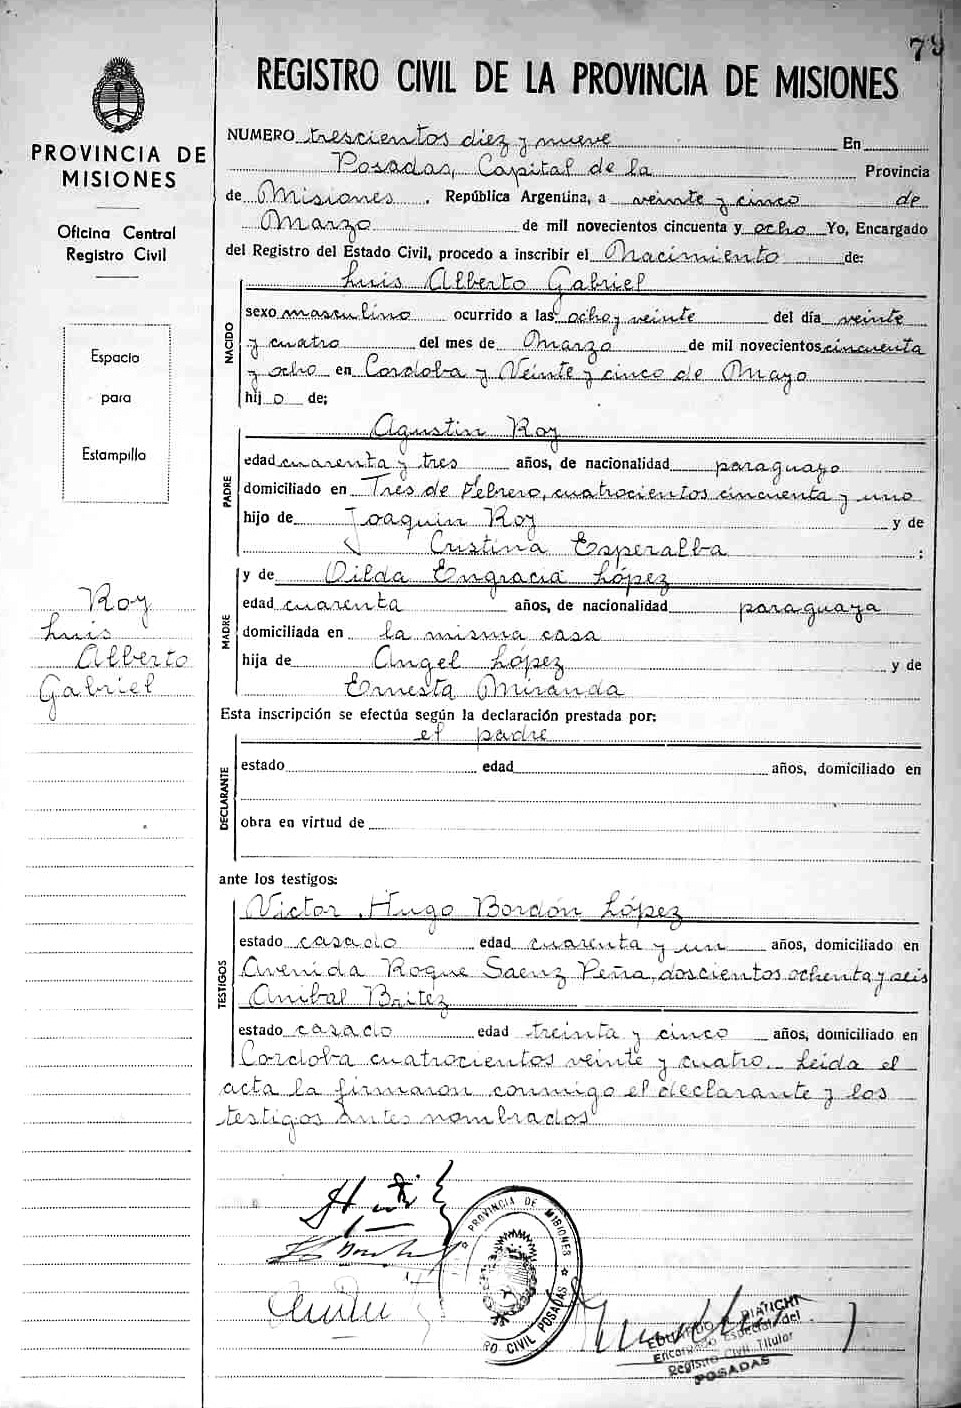 79
REGISTRO CIVIL DE LA PROVINCIA DE MISIONES
PROVINCIA DE
MISIONES
Oficina Central
Registro Civil
Espacio
para
Estampilla
Roy
Luis
Alberto
Gabriel
NUMERO trescientos diez y nueve En
Posadas, Capital de la Provincia
de Misiones. República Argentina, a veinte y cinco de
Marzo de mil novecientos cincuenta y ocho Yo, Encargado
del Registro del Estado Civil, procedo a inscribir el Nacimiento de:
NACIDO
Luis Alberto Gabriel
sexo masculino ocurrido a las ocho y veinte del día veinte
y cuatro del mes de Marzo de mil novecientos cincuenta
y ocho en Cordoba y Veinte y cinco de Mayo
hijo de;
PADRE
Agustin Roy
edad cuarenta y tres años, de nacionalidad paraguayo
domiciliado en Tres de Febrero, cuatrocientos cincuenta y uno
hijo de Joaquin Roy y de
Cristina Esperalba ;
MADRE
y de Vilda Engracia López
edad cuarenta años, de nacionalidad paraguaya
domiciliada en la misma casa
hija de Angel López y de
Ernesta Miranda
Esta inscripción se efectúa según la declaración prestada por:
el padre
DECLARANTE
estado edad años, domiciliado en
obra en virtud de
ante los testigos:
TESTIGOS
Victor Hugo Bordón López
estado casado edad cuarenta y un años, domiciliado en
Avenida Roque Saenz Peña, doscientos ochenta y seis
Anibal Britez
estado casado edad treinta y cinco años, domiciliado en
Cordoba cuatrocientos veinte y cuatro. Leida el
acta la firmaron conmigo el declarante y los
testigos antes nombrados
PROVINCIA DE MISIONES
CIVIL POSADAS
EDUARDO BIANCHI
Encargado Especial del
Registro Civil Titular
POSADAS